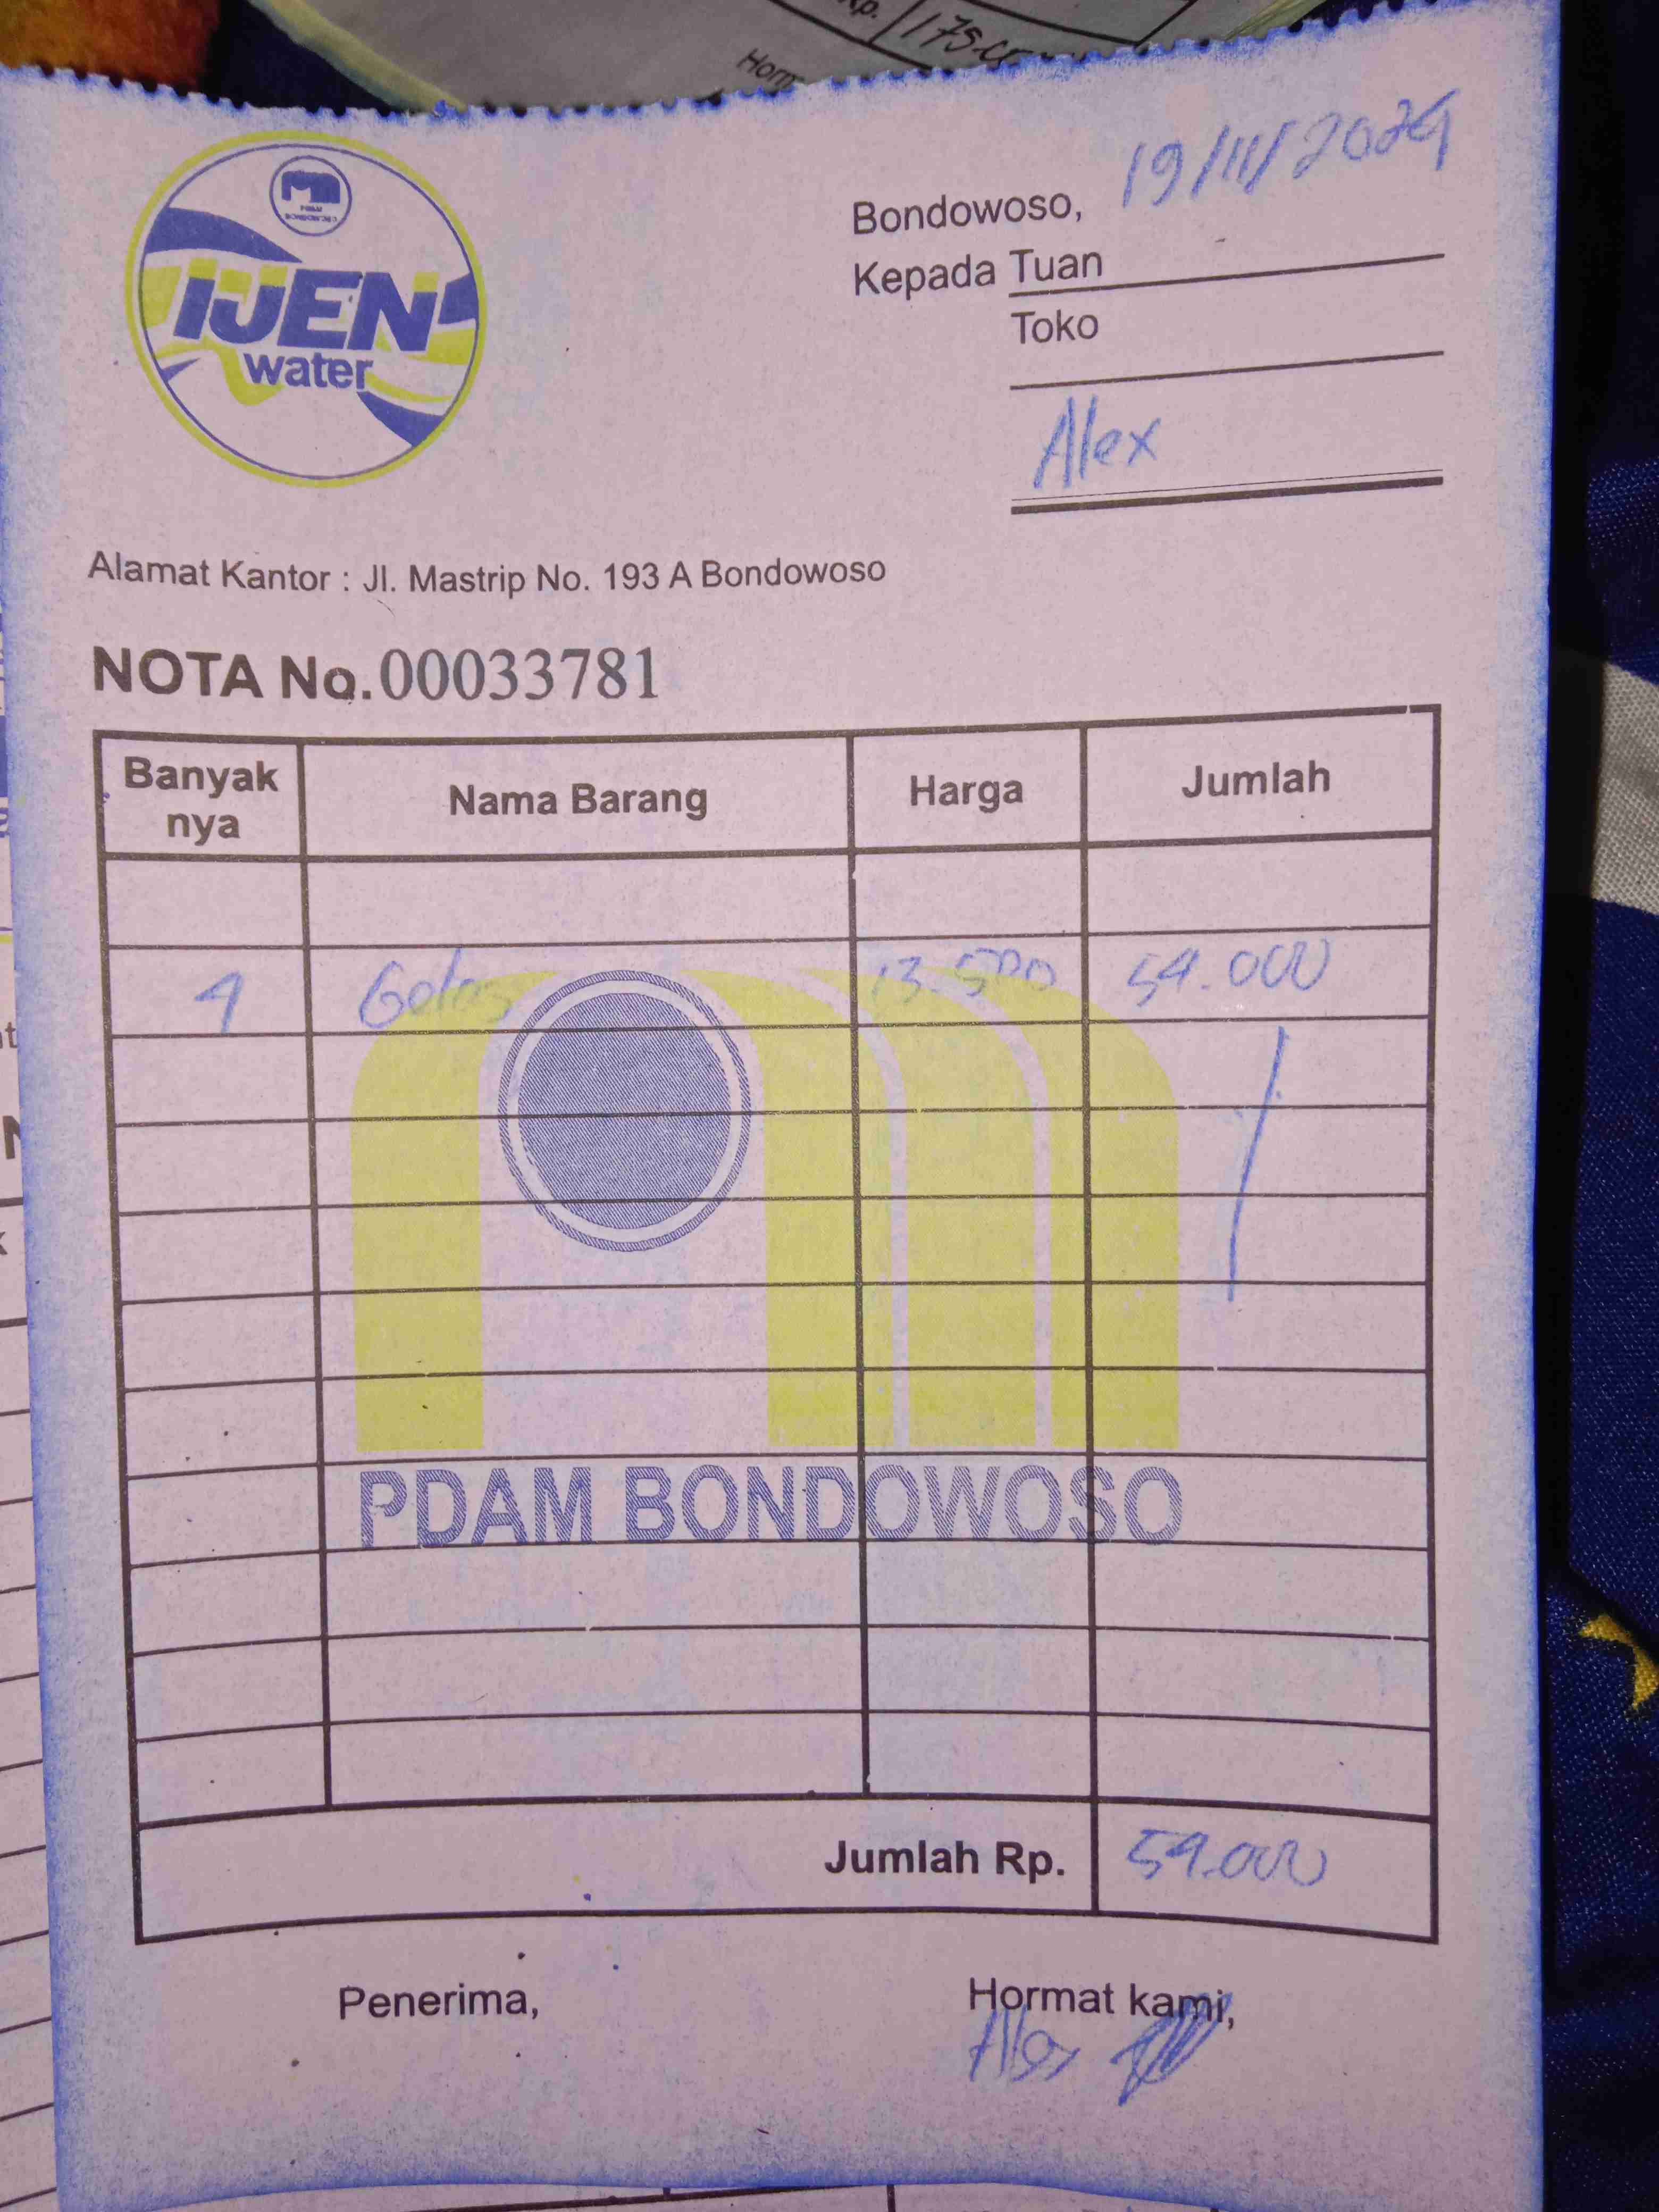 Rp. 175.
Horm
PDAM
BONDOWOSO
IJEN
water
Bondowoso, 19/III/2024
Kepada Tuan
Toko
Alex
Alamat Kantor : Jl. Mastrip No. 193 A Bondowoso
NOTA No. 00033781
Banyak nya Nama Barang Harga Jumlah
4 Gelas 13.500 54.000
PDAM BONDOWOSO
Jumlah Rp. 54.000
Penerima, Hormat kami,
Alex